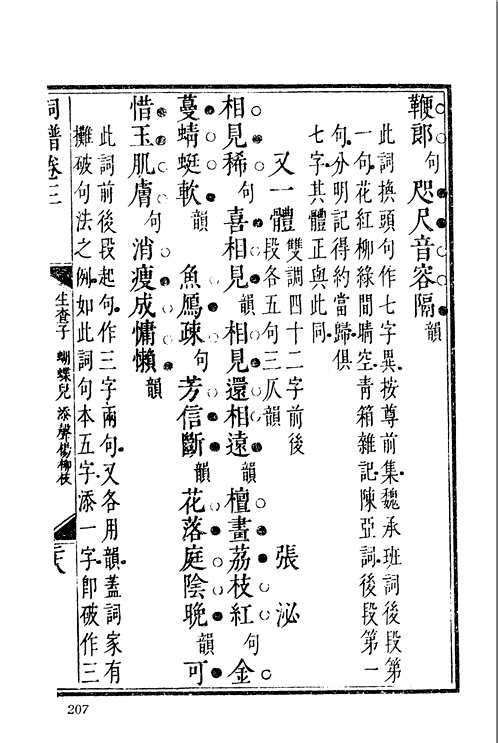 鞭郎句咫尺音容隔韻
此詞換頭句作七字異按尊前集魏承班詞後段第
一句花紅柳綠間晴空青箱雜記陳亞詞後段第一
句分明記得約當歸俱
七字其體正與此同
又一體雙調四十二字前後
段各五句三仄韻
張泌
相見稀句喜相見韻相見還相遠韻檀畫荔枝紅句金
蔓蜻蜓軟韻魚鴈疎句芳信斷韻花落庭陰晚韻可
惜玉肌膚句消瘦成慵懶韻
此詞前後段起句作三字兩句又各用韻蓋詞家有
攤破句法之例如此詞句本五字添一字即破作三
詞譜卷三
生查子 蝴蝶兒 添聲楊柳枝
207